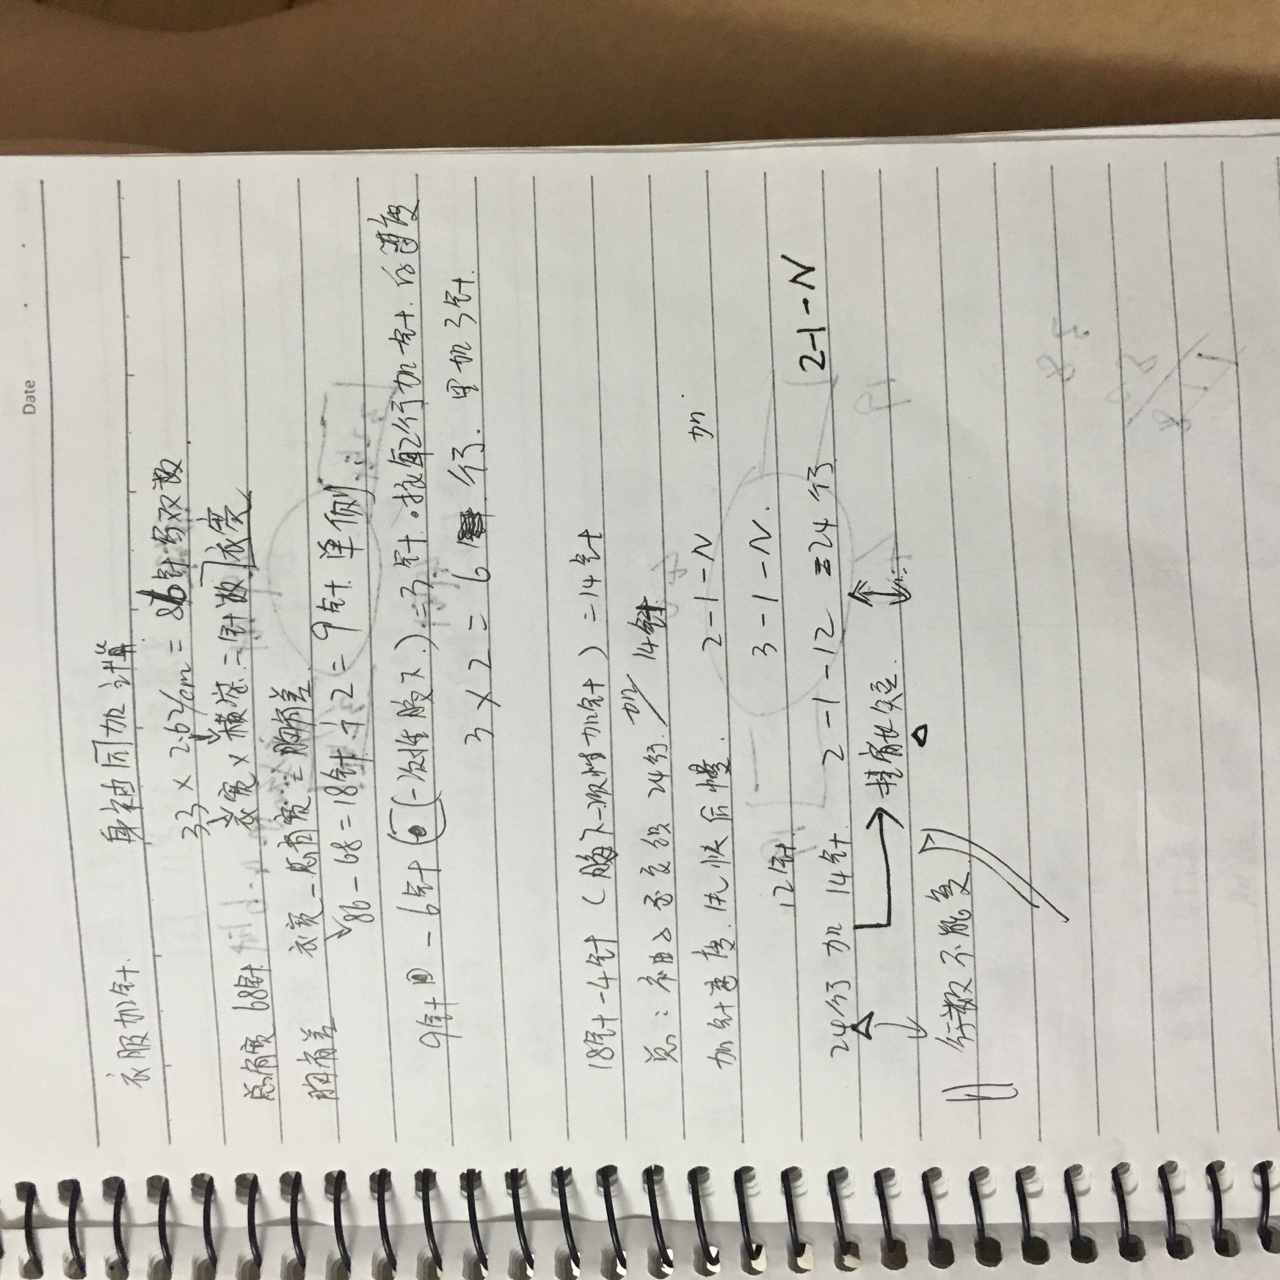 Date
衣服加针. 身袖同加计算
33 × 2.62/cm = 86针写双数
衣宽 × 横密 = 针数 衣宽
总肩宽 68针
衣宽 - 总肩宽 = 胸肩差
胸肩差 86 - 68 = 18针 ÷ 2 = 9针 单侧
9针 - 6针 (一次性腋下) = 3针 · 按每2行加一针.的速度
3 × 2 = 6 行. 里加3针.
18针 - 4针 (腋下一次性加针) = 14针
总: 24行. 加 14针
加针速度.先快后慢. 2-1-N 加
12针. 3-1-N.
24行 加 14针. 2-1-12 = 24行 2-1-N
行数不能